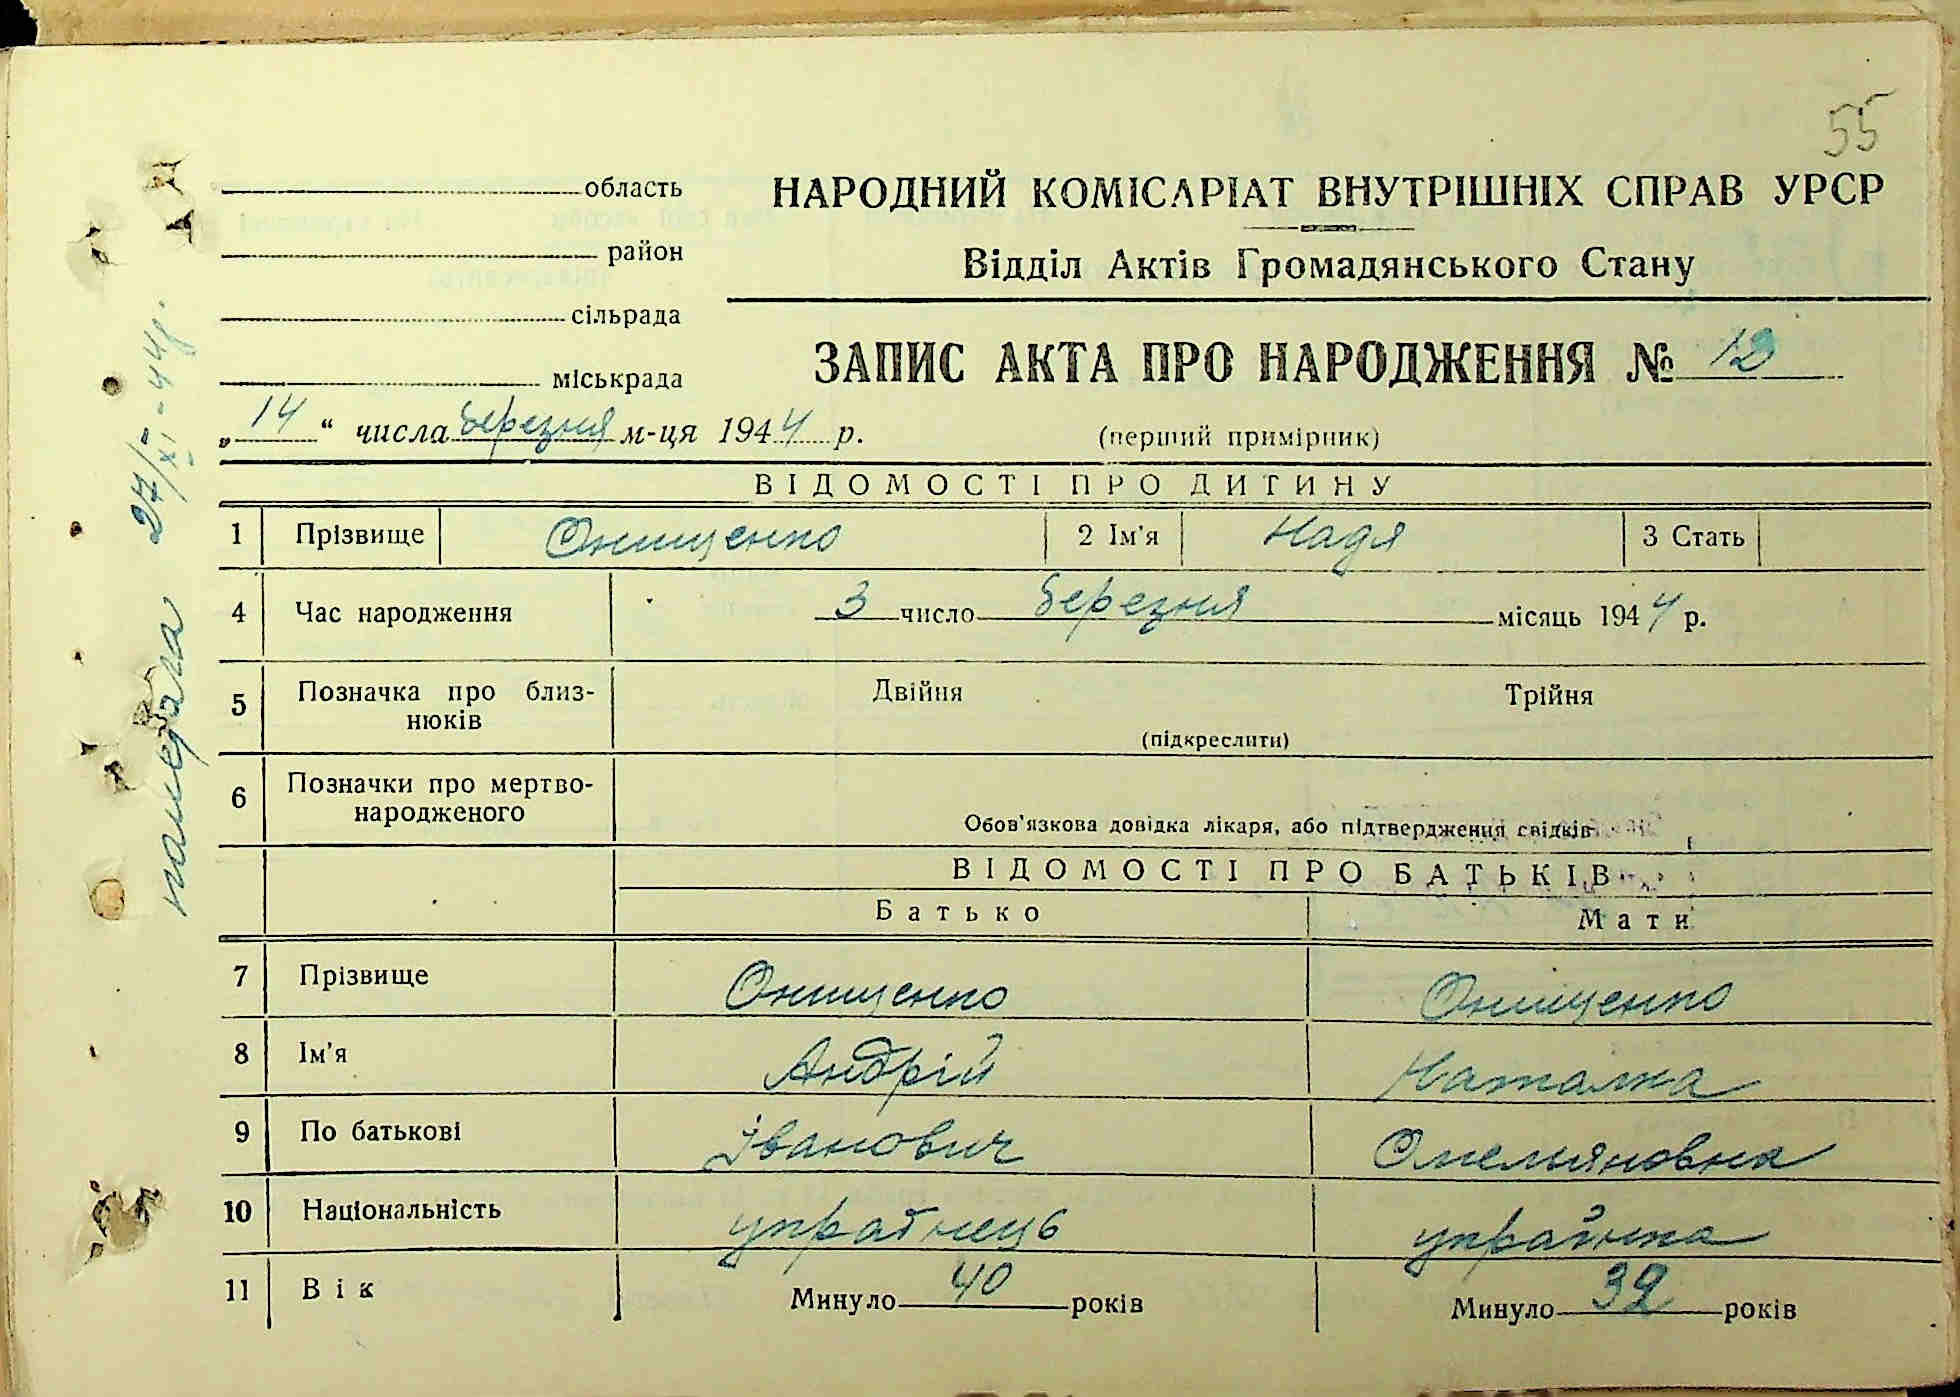 55
область
район
сільрада
міськрада
НАРОДНИЙ КОМІСАРІАТ ВНУТРІШНІХ СПРАВ УРСР
Відділ Актів Громадянського Стану
ЗАПИС АКТА ПРО НАРОДЖЕННЯ № 12
„14“ числа березня м-ця 1944 р.
(перший примірник)
ВІДОМОСТІ ПРО ДИТИНУ
1 Прізвище Онищенко 2 Ім'я Надя 3 Стать
4 Час народження 3 число березня місяць 1944 р.
5 Позначка про близ-
нюків
Двійня Трійня
(підкреслити)
6 Позначки про мертво-
народженого
Обов'язкова довідка лікаря, або підтвердження свідків
ВІДОМОСТІ ПРО БАТЬКІВ
Батько Мати
7 Прізвище Онищенко Онищенко
8 Ім'я Андрій Наталка
9 По батькові Іванович Омельяновна
10 Національність українець українка
11 Вік Минуло 40 років Минуло 32 років
27/XI-44р.